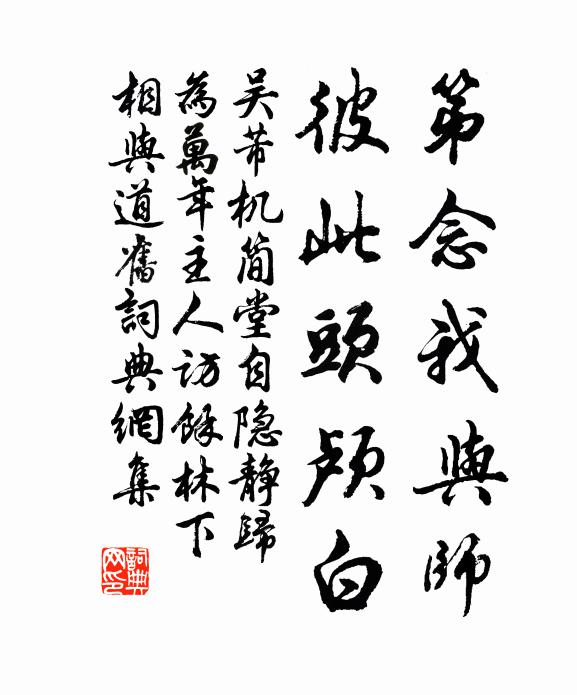 第念我與師
彼此頭顱白
吴芾机简堂自隐静歸
為萬年主人访餘林下
相與道舊詞典網集
詞典
网印